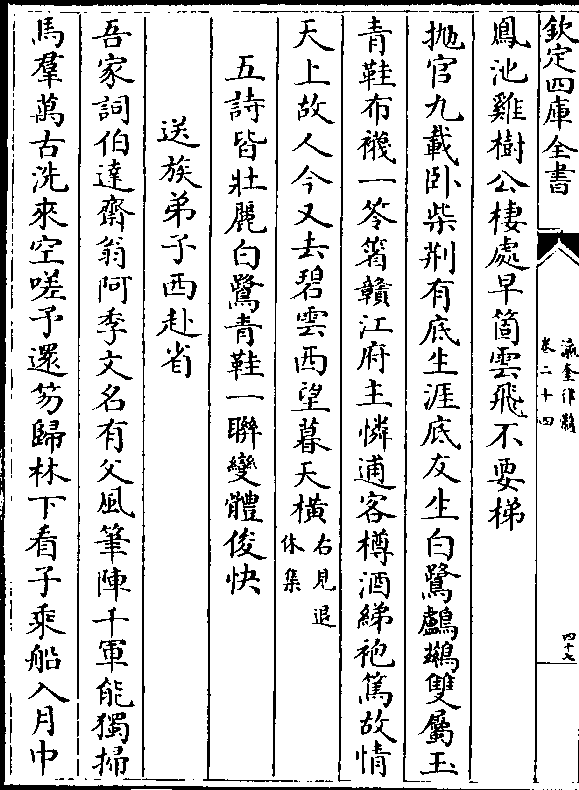 欽定四庫全書
瀛奎律髓
卷二十四
四十七
鳳池雞樹公棲處早箇雲飛不要梯
抛官九載卧柴荆有底生涯底友生白鷺鸕鷀雙屬玉
青鞋布襪一笭箵贛江府主憐逋客樽酒綈袍篤故情
天上故人今又去碧雲西望暮天横右見退
休集
五詩皆壯麗白鷺青鞋一聯變體俊快
送族弟子西赴省
吾家詞伯達齋翁阿季文名有父風筆陣千軍能獨掃
馬羣萬古洗來空嗟予還笏歸林下看子乘船入月中